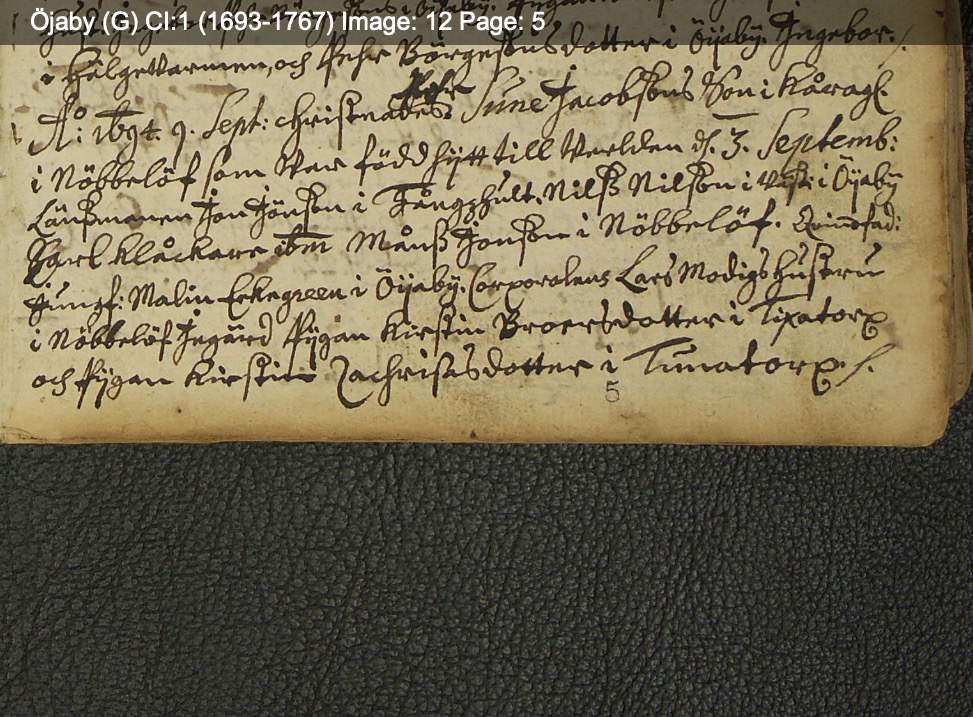 Öjaby (G) CI:1 (1693-1767) Image: 12 Page: 5
i Helgewarmen, och Pehr Börgesonsdotter i Öijaby. Ingebor.
Pehr
A:o 1694. 9. Sept: Christnades Sune Jacobsons Son i Kåragl.
i Nöbbelöf som war född hijtt till Werlden d. 3. Septemb:
Länßmanen Jon Jönson i Tångghult. Nilß Nilson i i Öijaby
Karl Klåckare ibm Månß Jonson i Nöbbelöf. Qvinnfad:
Jungf: Malin Eekegreen i Öijaby. Corporalens Lars Modigs Hustru
i Nöbbelöf Ingärd Pijgan Kirstin Broersdotter i Tixatorp
och Pijgan Kirstin Zachrisesdotter i Tunatorp
5